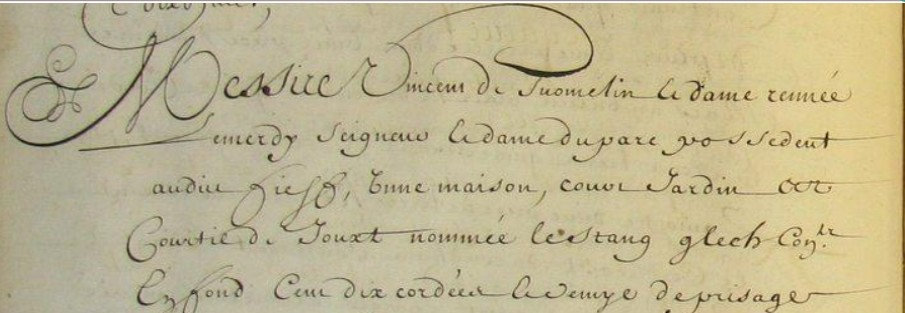 Messire Vincent de Tuomelin & dame rennée
Lemerdy Seigneur & dame du parc possedent
audit fieff, Vnne maison, couvr Jardin et
Courtil de Jouxt nommée le stang glech Contr
En fond Cent dix cordées & demye de prisage